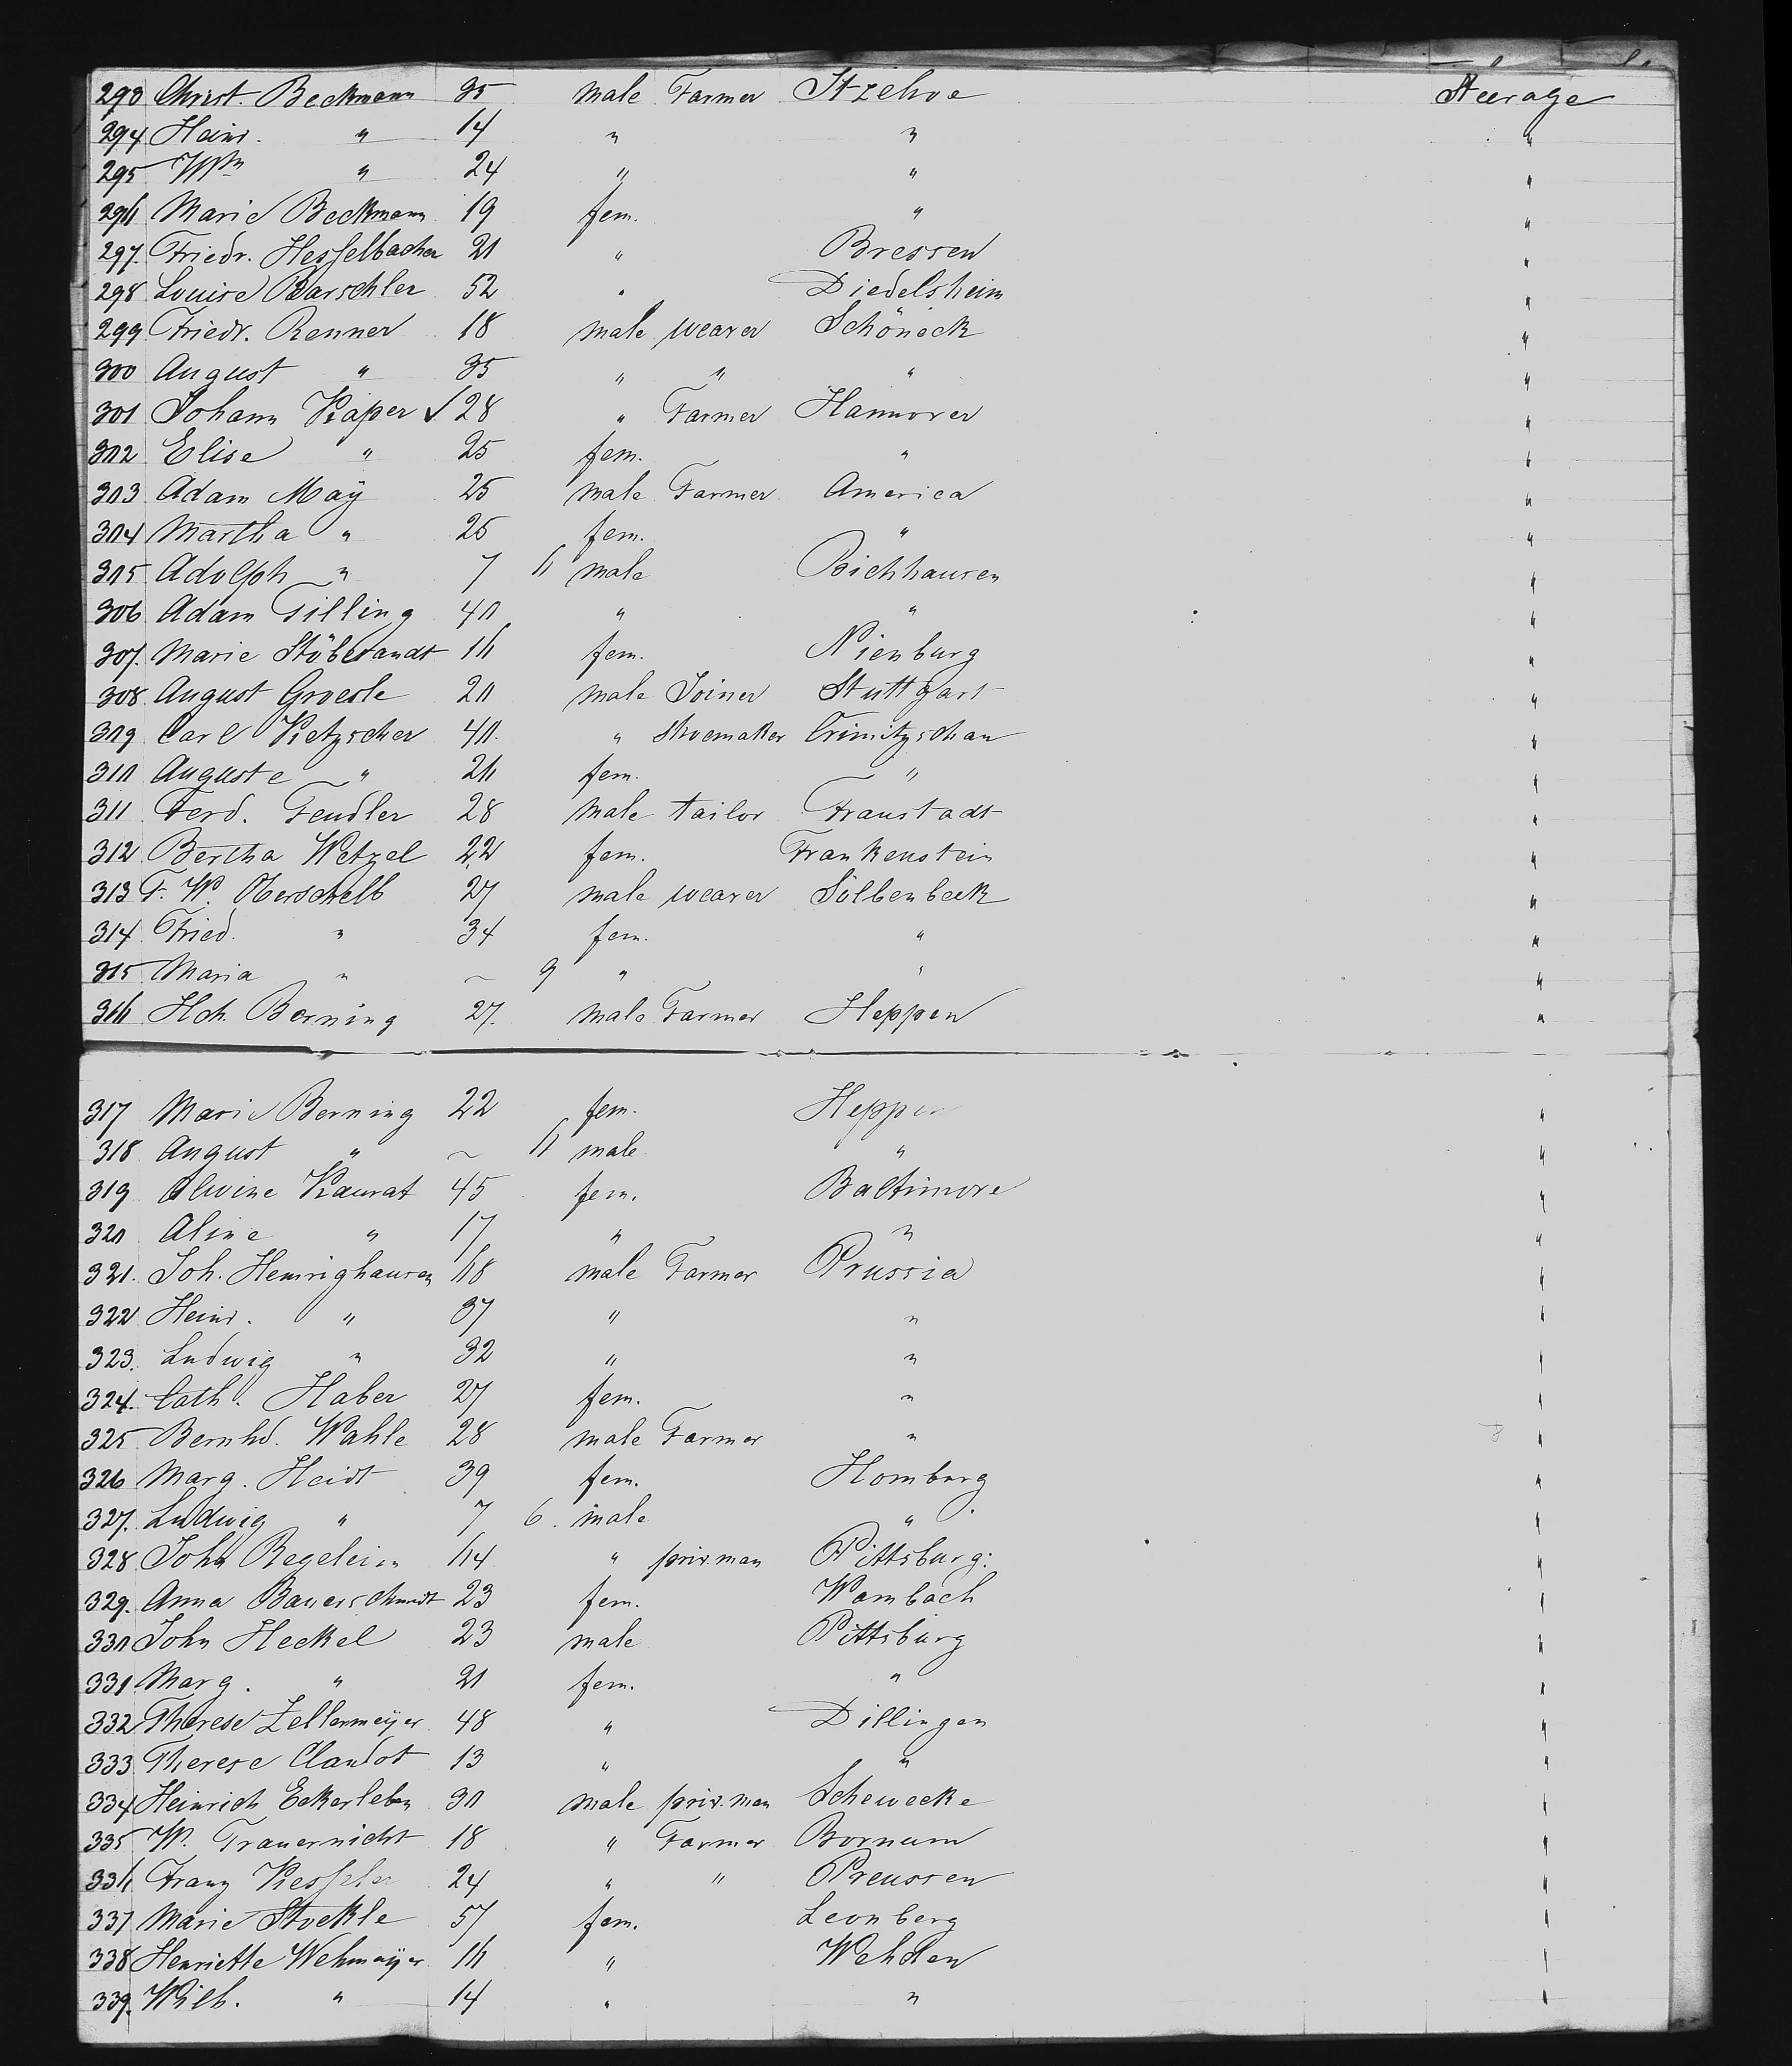 293 Christ. Beckmann 35 male Farmer Itzehoe Steerage
294 Heinr. " 14 " " "
295 Wm " 24 " " "
296 Marie Beckmann 19 fem. " "
297. Friedr. Hesselbacher 21 " Bressen "
298 Louise Barschler 52 " Diedelsheim "
299 Friedr. Renner 18 male weaver Schöneck "
300 August " 35 " " " "
301 Johann Käper ✓ 28 " Farmer Hannover "
302 Elise " 25 fem. " "
303 Adam Maÿ 25 male Farmer America "
304 Martha " 25 fem. " "
305 Adolph " 7 6 male Bichhausen "
306 Adam Gilling 40 " " "
307. Marie Stöbesandt 16 fem. Nienburg "
308. August Groesle 20 male Joiner Stuttgart "
309 Carl Kietzscher 40. " Shoemaker Crimitzschau "
310 Auguste " 26 fem. " "
311 Ferd. Fendler 28 male tailor Fraustadt "
312 Bertha Wetzel 22 fem. Frankenstein "
313 F. W. Oberschelb 27 male weaver Sölbenbeck "
314 Fried. " 34 fem. " "
315 Maria " ~ 9 " " "
316 Hch. Berning 27. male Farmer Heppen "
317 Marie Berning 22 fem. Heppen "
318 August " ~ 6 male " "
319 Alwine Kaurat 45 fem. Baltimore "
320 Aline " 17 " " "
321. Joh. Henrighausen 68 male Farmer Prussia "
322 Heinr. " 37 " " "
323. Ludwig " 32 " " "
324. Cath. Haber 27 fem. " "
325 Bernhd. Wahle 28 male Farmer " "
326 Marg. Heidt 39 fem. Homburg "
327. Ludwig " 7 6. male " "
328 John Regelein 64 " priv. man Pittsburg: "
329. Anna Bauerschmidt 23 fem. Wambach "
330 John Heckel 23 male Pittsburg "
331 Marg. " 21 fem. " "
332 Therese Zellermeÿer 48 " Dillingen "
333 Therese Claudot 13 " " "
334 Heinrich Eckerleben 30 male priv. man Schewecke "
335 W. Trauernicht 18 " Farmer Bornum "
336 Franz Kessler 24 " " Preussen "
337 Marie Stockle 57 fem. Leonberg "
338 Henriette Wehmeÿer 16 " Wehden "
339. Wilh. " 14 " " "